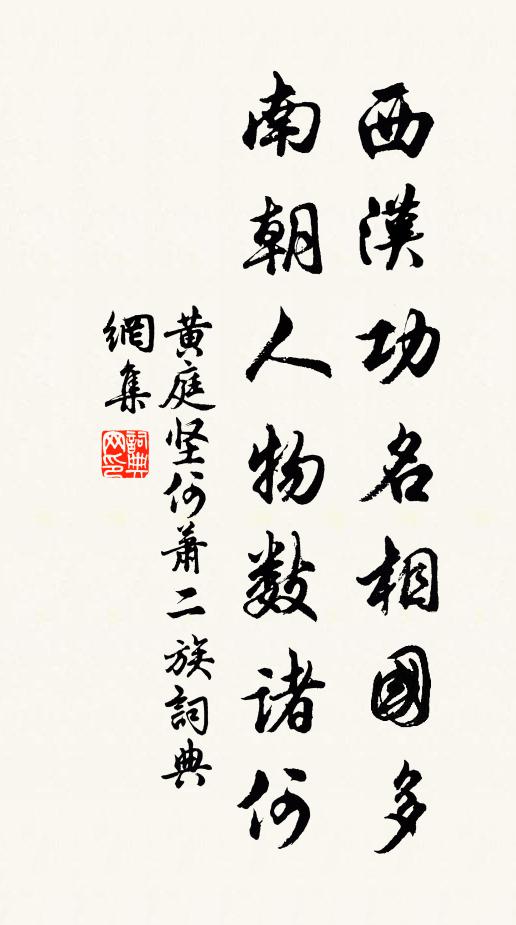 西漢功名相國多
南朝人物数諸何
黄庭坚何蕭二族詞典
網集
詞典
网印